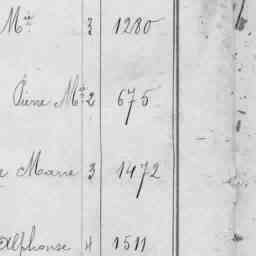 Mie 3 1280
Pierre Mie 2 675
e Marie 3 1472
Alphonse 4 1511